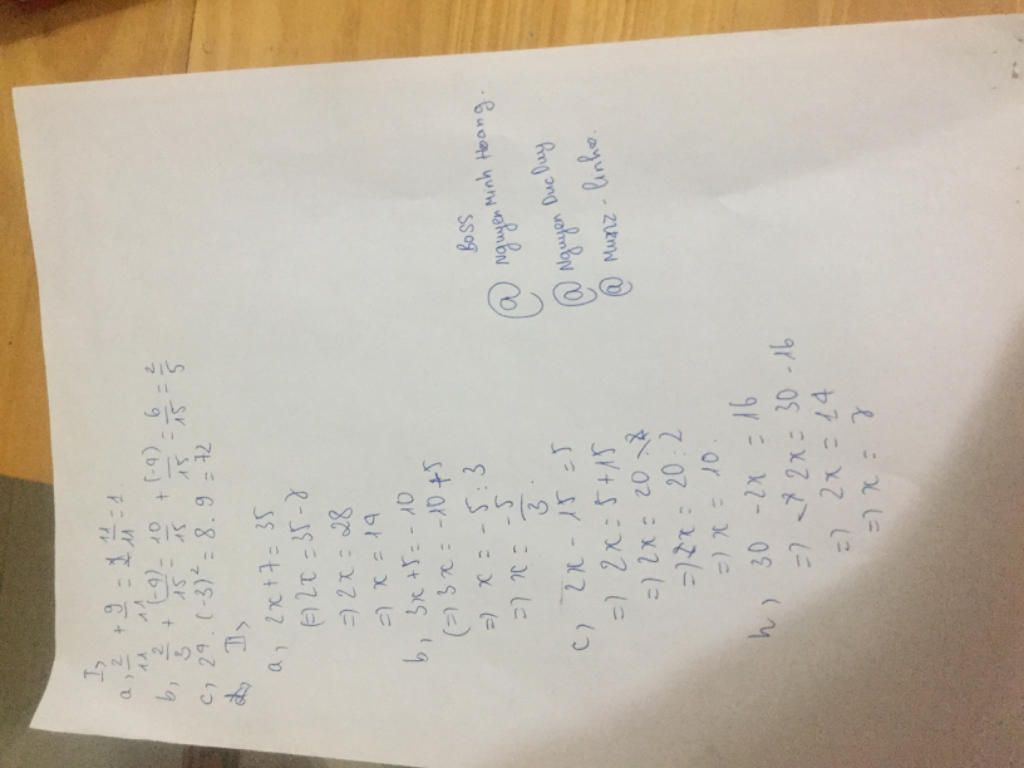 I,
a, 2/11 + 9/11 = 11/11 = 1.
b, 2/3 + (-9)/15 = 10/15 + (-9)/15 = 6/15 = 2/5
c, 29 . (-3)² = 8 . 9 = 72
II,
a, 2x + 7 = 35
(=) 2x = 35 - 7
=) 2x = 28
=) x = 14
b, 3x + 5 = -10
(=) 3x = -10 + 5
=) x = -5 : 3
=) x = -5/3
c, 2x - 15 = 5
=) 2x = 5 + 15
=) 2x = 20
=) 2x = 20 : 2
=) x = 10.
h, 30 - 2x = 16
=) 2x = 30 - 16
=) 2x = 14
=) x = 7
BOSS
@ Nguyen Minh Hoang.
@ Nguyen Duc Duy
@ Munz - linho.